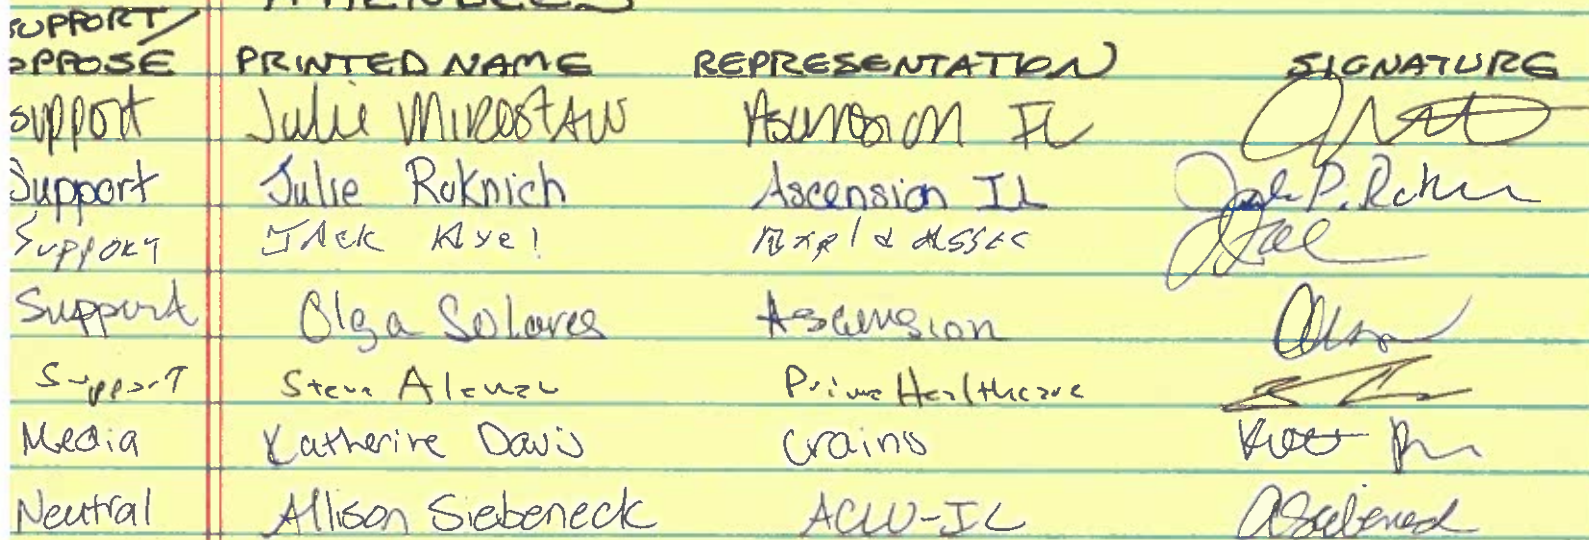 ATTENDEES
SUPPORT/
OPPOSE PRINTED NAME REPRESENTATION SIGNATURE
support Julie Mirostaw Ascension IL
Support Julie Roknich Ascension IL
Support Jack Axel
Support Olga Solares Ascension
Support Steve Prime Healthcare
Media Katherine Davis Crains
Neutral Allison Siebeneck ACLU-IL